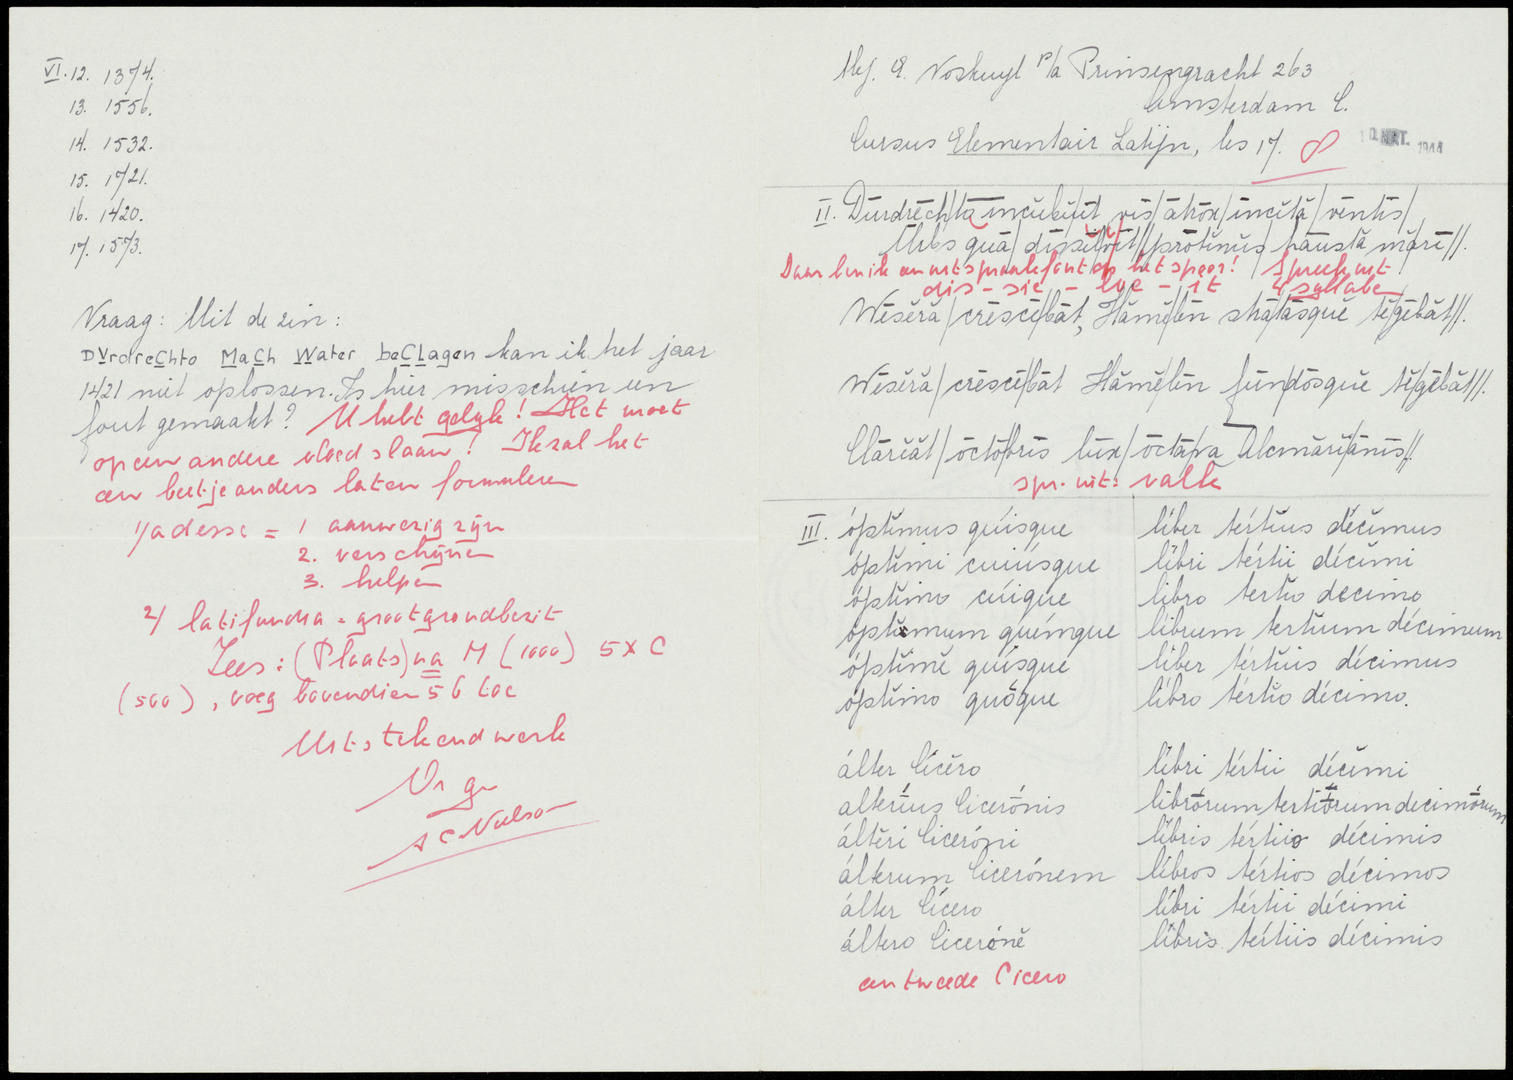 VI. 12. 1374.
13. 1556.
14. 1532.
15. 1721.
16. 1420.
17. 1573.
Vraag: Uit de zin:
DVrdreChto MaCh Water beCLagen kan ik het jaar
1421 niet oplossen. Is hier misschien een
fout gemaakt? U hebt gelijk! Het moet
op een andere vloed slaan! Ik zal het
een beetje anders laten formuleren
1/ adesse = 1 aanwezig zijn
2. verschijnen
3. helpen
2/ latifundia = grootgrondbezit
Lees: (Plaats) na M (1000) 5 x C
(500), voeg bovendien 56 toe
Uitstekend werk
A C Nielson
Mej. E. Voskuyl p/a Prinsengracht 263
Amsterdam C.
Cursus Elementair Latijn, les 17. 8 1944
II. Dūrdrēch/tā īncŭbŭit vīs/ătrōx/īncĭtă/vēntīs/
Ūrbs quā/dīssĭlŭĭt//prōtĭnŭs/hāustă mărī//.
Daar ben ik een uitspraakfout op het spoor! Spreek uit
dis - sie - loe - it 4 syllabe
Wĕsĕră/crēscē/bāt, Hāmĕ/līn strā/tāsquĕ tĕ/gēbăt//.
Wĕsĕră/crēscē/bāt Hāmĕ/līn fūn/dōsquĕ tĕ/gēbăt//.
Clārĕăt/ōctō/brīs lūx/ōctāvā Ālcmărĭ/ānīs//
spr. uit: valk
III. óptimus quísque líber tértius décimus
óptimi cuiúsque líbri tértii décimi
óptimo cúique libro tertio decimo
óptimum quémque librum tertium décimum
óptime quísque líber tértius décimus
óptimo quóque líbro tértio décimo.
álter Cícero líbri tértii décimi
alteríus Cicerónis librórum tertiórum decimórum
álteri Cicerόni líbris tértiis décimis
álterum Cicerónem líbros tértios décimos
álter Cícero líbri tértii décimi
áltero Ciceróne líbris tértiis décimis
een tweede Cicero